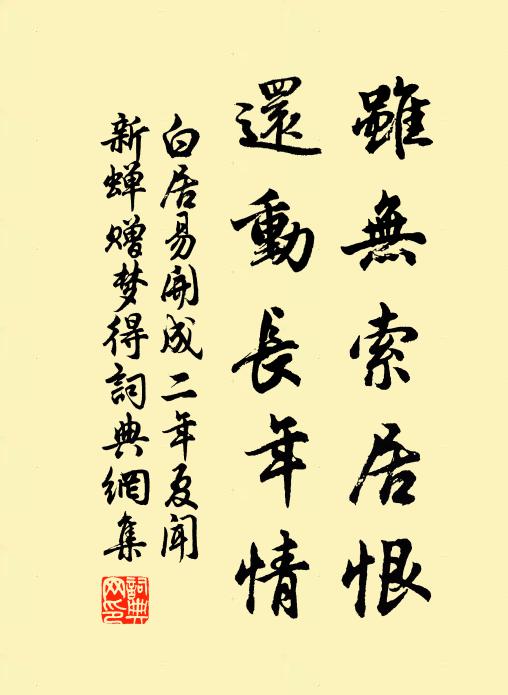 雖無索居恨
還動長年情
白居易開成二年夏聞
新蝉贈梦得詞典網集